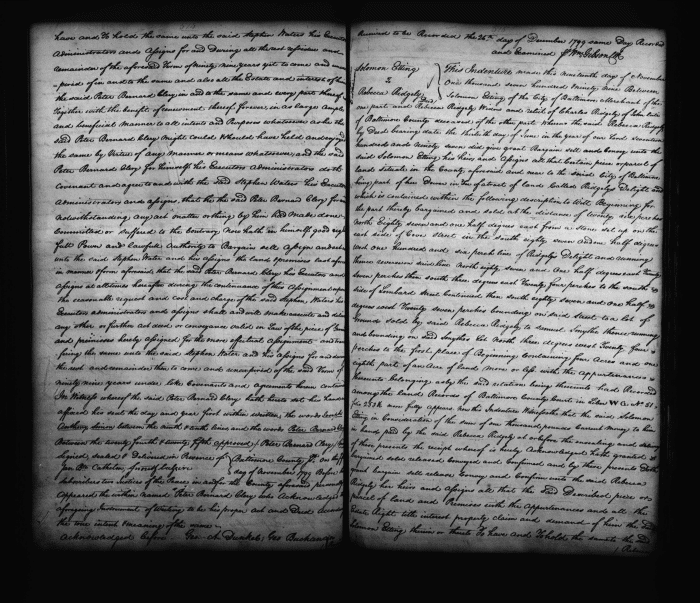 have and To hold the same unto the said Stephen Waters his Executors
Administrators and Assigns for and During all the rest residue and
remainder of the aforesaid Term of Ninety nine years yet to come and unex
pired of in and to the same and also all the Estate and interest of him
the said Peter Bernard Clay in and to the same and every part thereof
Together with the benefit of renewment thereof forever, in as large Ample
and beneficial manner to all intents and Purposes whatsoever as he the
said Peter Bernard Clay might Could or Should have held and enjoyed
the same by Virtue of any manner or means whatsoever, and the said
Peter Bernard Clay for himself his Executors Administrators doth
Covenant and agree to and with the said Stephen Waters his Executors
Administrators and Assigns, that he the said Peter Bernard Clay for and
notwithstanding any act matter or thing by him had made done
Committed or suffered to the Contrary now hath in himself good right
full Power and Lawfull Authority to Bargain sell Assign and
unto the said Stephen Waters and his Assigns the land & premises
in manner & form aforesaid, that the said Peter Bernard Clay his Executors and
Assigns at all times hereafter during the continuance of this Assignment upon
the reasonable request and cost and charge of the said Stephen Waters his
Executors administrators and assigns shall and will make execute and
any other or further act deed or conveyance valid in Law of the piece of
and premises hereby assigned for the more effectual assignment and
firing the same unto the said Stephen Waters and his Assigns for and
the rest and remainder then to come and unexpired of the said Term of
ninety nine years under like Covenants and agreements herein contain
In Witness whereof the said Peter Bernard Clay hath hereto set his hand
affixed his seal the day and year first within written, the words
between the ninth & tenth lines and the words Peter Bernard
Between the twenty fourth & twenty fifth approved / Peter Bernard Clay
Signed, sealed & Delivered in Presence of Baltimore County Ss on
day of November 1799 Before
Subscribers two Justices of the Peace in and for the County aforesaid personally
Appeared the within named Peter Bernard Clay who Acknowledged
aforegoing Instrument of Writing to be his proper act and Deed
the true intent & meaning of the same
Acknowledged before Geo: Buchanan
Received to be Recorded the 26th day of December 1799 same Day Recorded
and Examined Wm Gibson Clk
Solomon Etting
&
Rebecca Ridgely
Deed
This Indenture made this nineteenth day of November
One thousand seven hundred Ninety nine Between
Solomon Etting of the City of Baltimore Merchant of the
one part and Rebecca Ridgely Widow and relict of Charles Ridgely of John late
of Baltimore County deceased of the other part Whereas the said Rebecca Ridgely
by Deed bearing date the day of June in the year of our Lord Seventeen
hundred and Ninety seven did give grant Bargain sell and Convey unto the
said Solomon Etting his heirs and Assigns all that Certain piece or parcel of
land situate in the County aforesaid and near to the said City of Baltimore
being part of her Dower in the of a tract of land Called Ridgely's Delight and
which is contained within the following description to Wit. Beginning for
the part thereby bargained and sold at the distance of twenty six perches
North Eighty seven and one half degrees east from a stone set up on the
east side of Cove street in the south eighty seven and one half degrees
west one hundred and six perches line of Ridgely's Delight and running
thence reversing said line North eighty seven and One half degrees east Twenty
seven perches then south three degrees east Twenty four perches to the south
side of Lombard street Continued then south eighty seven and one half
degrees west Twenty seven perches bounding on said street to a lot of
Ground sold by said Rebecca Ridgely to Samuel Smythe thence running
and bounding on said Smythes lot North three degrees west Twenty four
perches to the first place of Beginning Containing four Acres and one
eighth part of an Acre of land more or less with the appurtenances
thereunto belonging as by the said relation being thereunto had Recorded
among the land Records of Baltimore County Court in Liber W G No 51
fo 258 &c now fully appears
Etting in Consideration of the sum of one thousand pounds Current money to him
in hand paid by the said Rebecca Ridgely at or before the ensealing and delivery
of these presents the receipt whereof is hereby Acknowledged hath granted
bargained sold released Conveyed and Confirmed and by these presents Doth
grant bargain sell release Convey and Confirm unto the said Rebecca
Ridgely her heirs and assigns all that the said Described piece or
parcel of land and Premises with the Appurtenances and all the
Estate Right title interest property claim and demand of him the said
Solomon Etting therein or thereto To have and To hold the same to the said